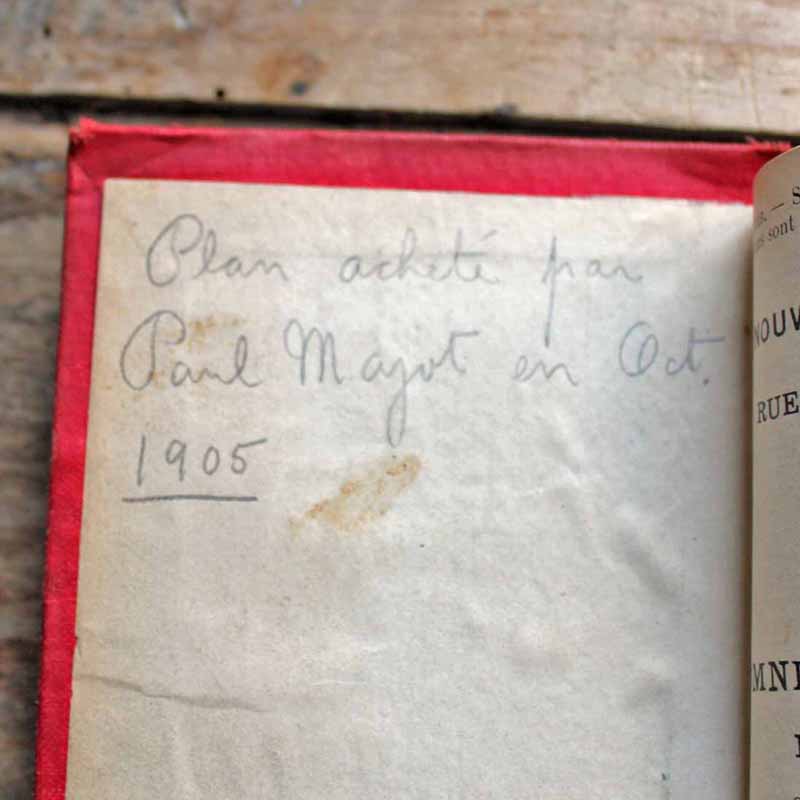 Plan acheté par
Paul Mayot en Oct.
1905
sont
RUE